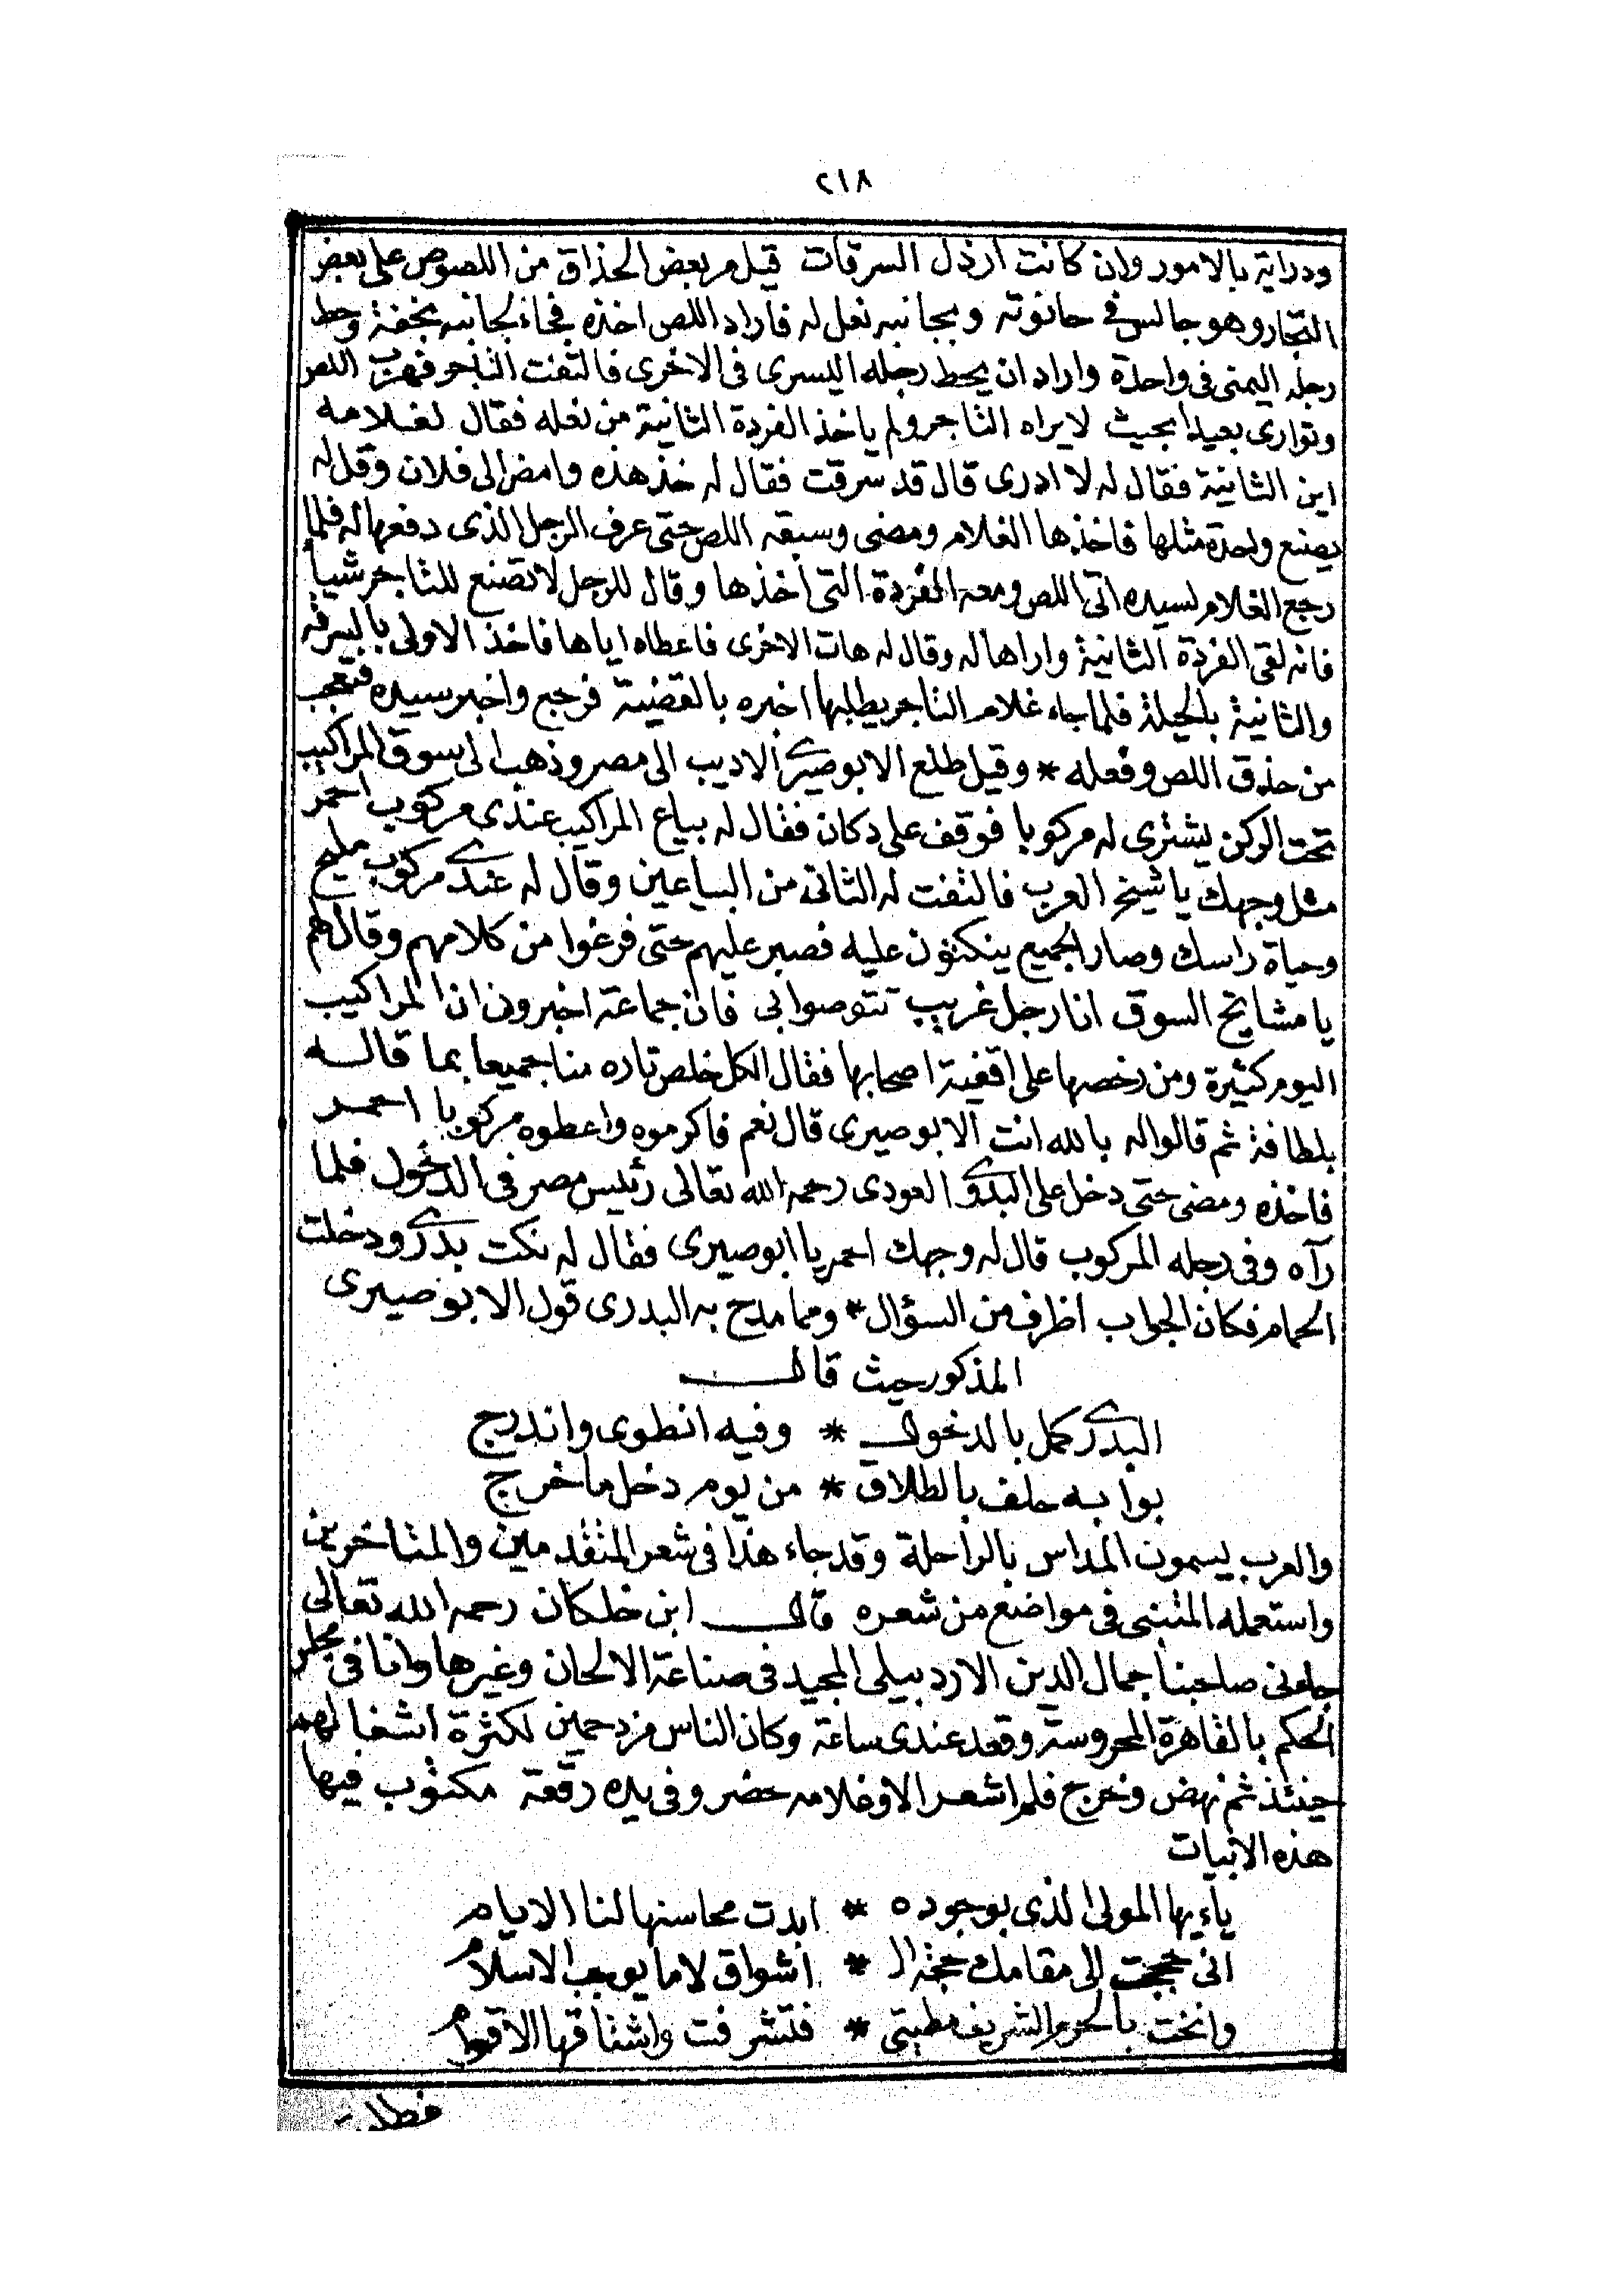 ٢١٨
ودراية بالامور وان كانت ارذل السرقات قيل مر بعض الحذاق من اللصوص على بعض
التجار وهو جالس فى حانوته وبجانبه نعل له فاراد اللص اخذه فجاء لجانبه بخفة وحط
رجله اليمنى فى واحدة واراد ان يحط رجله اليسرى فى الاخرى فالتفت التاجر فهرب اللص
وتوارى بعيدا بحيث لا يراه التاجر ولم ياخذ الفردة الثانية من نعله فقال لغلامه
اين الثانية فقال له لا ادرى قال قد سرقت فقال له خذ هذه وامض الى فلان وقل له
يصنع واحدة مثلها فاخذها الغلام ومضى وسبقه اللص حتى عرف الرجل الذى دفعها له فلما
رجع الغلام لسيده اتى اللص ومعه الفردة التى اخذها وقال للرجل لا تصنع للتاجر شيأ
فانه لقى الفردة الثانية واراها له وقال له هات الاخرى فاعطاه اياها فاخذ الاولى بالسرقه
والثانية بالحيلة فلما جاء غلام التاجر يطلبها اخبره بالقضية فرجع واخبر سيده فتعجب
من حذق اللص وفعله * وقيل طلع الابوصيرى الاديب الى مصر وذهب الى سوق المراكيب
تحت الركن يشترى له مركوبا فوقف على دكان فقال له بياع المراكيب عندى مركوب احمر
مثل وجهك يا شيخ العرب فالتفت له الثانى من البياعين وقال له عندى مركوب مليح
وحياة راسك وصار الجميع ينكتون عليه فصبر عليهم حتى فرغوا من كلامهم وقال لهم
يا مشايخ السوق انا رجل غريب تتوصوا بى فان جماعة اخبرونى ان المراكيب
اليوم كثيرة ومن رخصها على اقفية اصحابها فقال الكل خلص تاره منا جميعا بما قاله
بلطافة ثم قالوا له بالله انت الابوصيرى قال نعم فاكرموه واعطوه مركوبا احمر
فاخذه ومضى حتى دخل على البدرى العودى رحمه الله تعالى رئيس مصر فى الدخول فلما
رآه وفى رجله المركوب قال له وجهك احمر يا ابوصيرى فقال له نكت بدرى ودخلت
الحمام فكان الجواب اظرف من السؤال * ومما مدح به البدرى قول الابوصيرى
المذكور حيث قال
البدرى كمل بالدخول * وفيه انطوى واندرج
بوابه حلف بالطلاق * من يوم دخل ما خرج
والعرب يسمون المداس بالراحلة وقد جاء هذا فى شعر المتقدمين والمتاخرين
واستعمله المتنبى فى مواضع من شعره قال ابن خلكان رحمه الله تعالى
جاءنى صاحبنا جمال الدين الاردبيلى المجيد فى صناعة الالحان وغيرها وانا فى مجلس
الحكم بالقاهرة المحروسة وقعد عندى ساعة وكان الناس مزدحمين لكثرة اشغالهم
حينئذ ثم نهض وخرج فلم اشعر الا وغلامه حضر وفى يده رقعة مكتوب فيها
هذه الابيات
يأيها المولى الذى بوجوده * ابدت محاسنها لنا الايام
انى حججت الى مقامك حجة ال * اشواق لا ما يوجب الاسلام
وانخت بالحرم الشريف مطيتى * فتشرفت واشتاقها الاقوام
فظللت